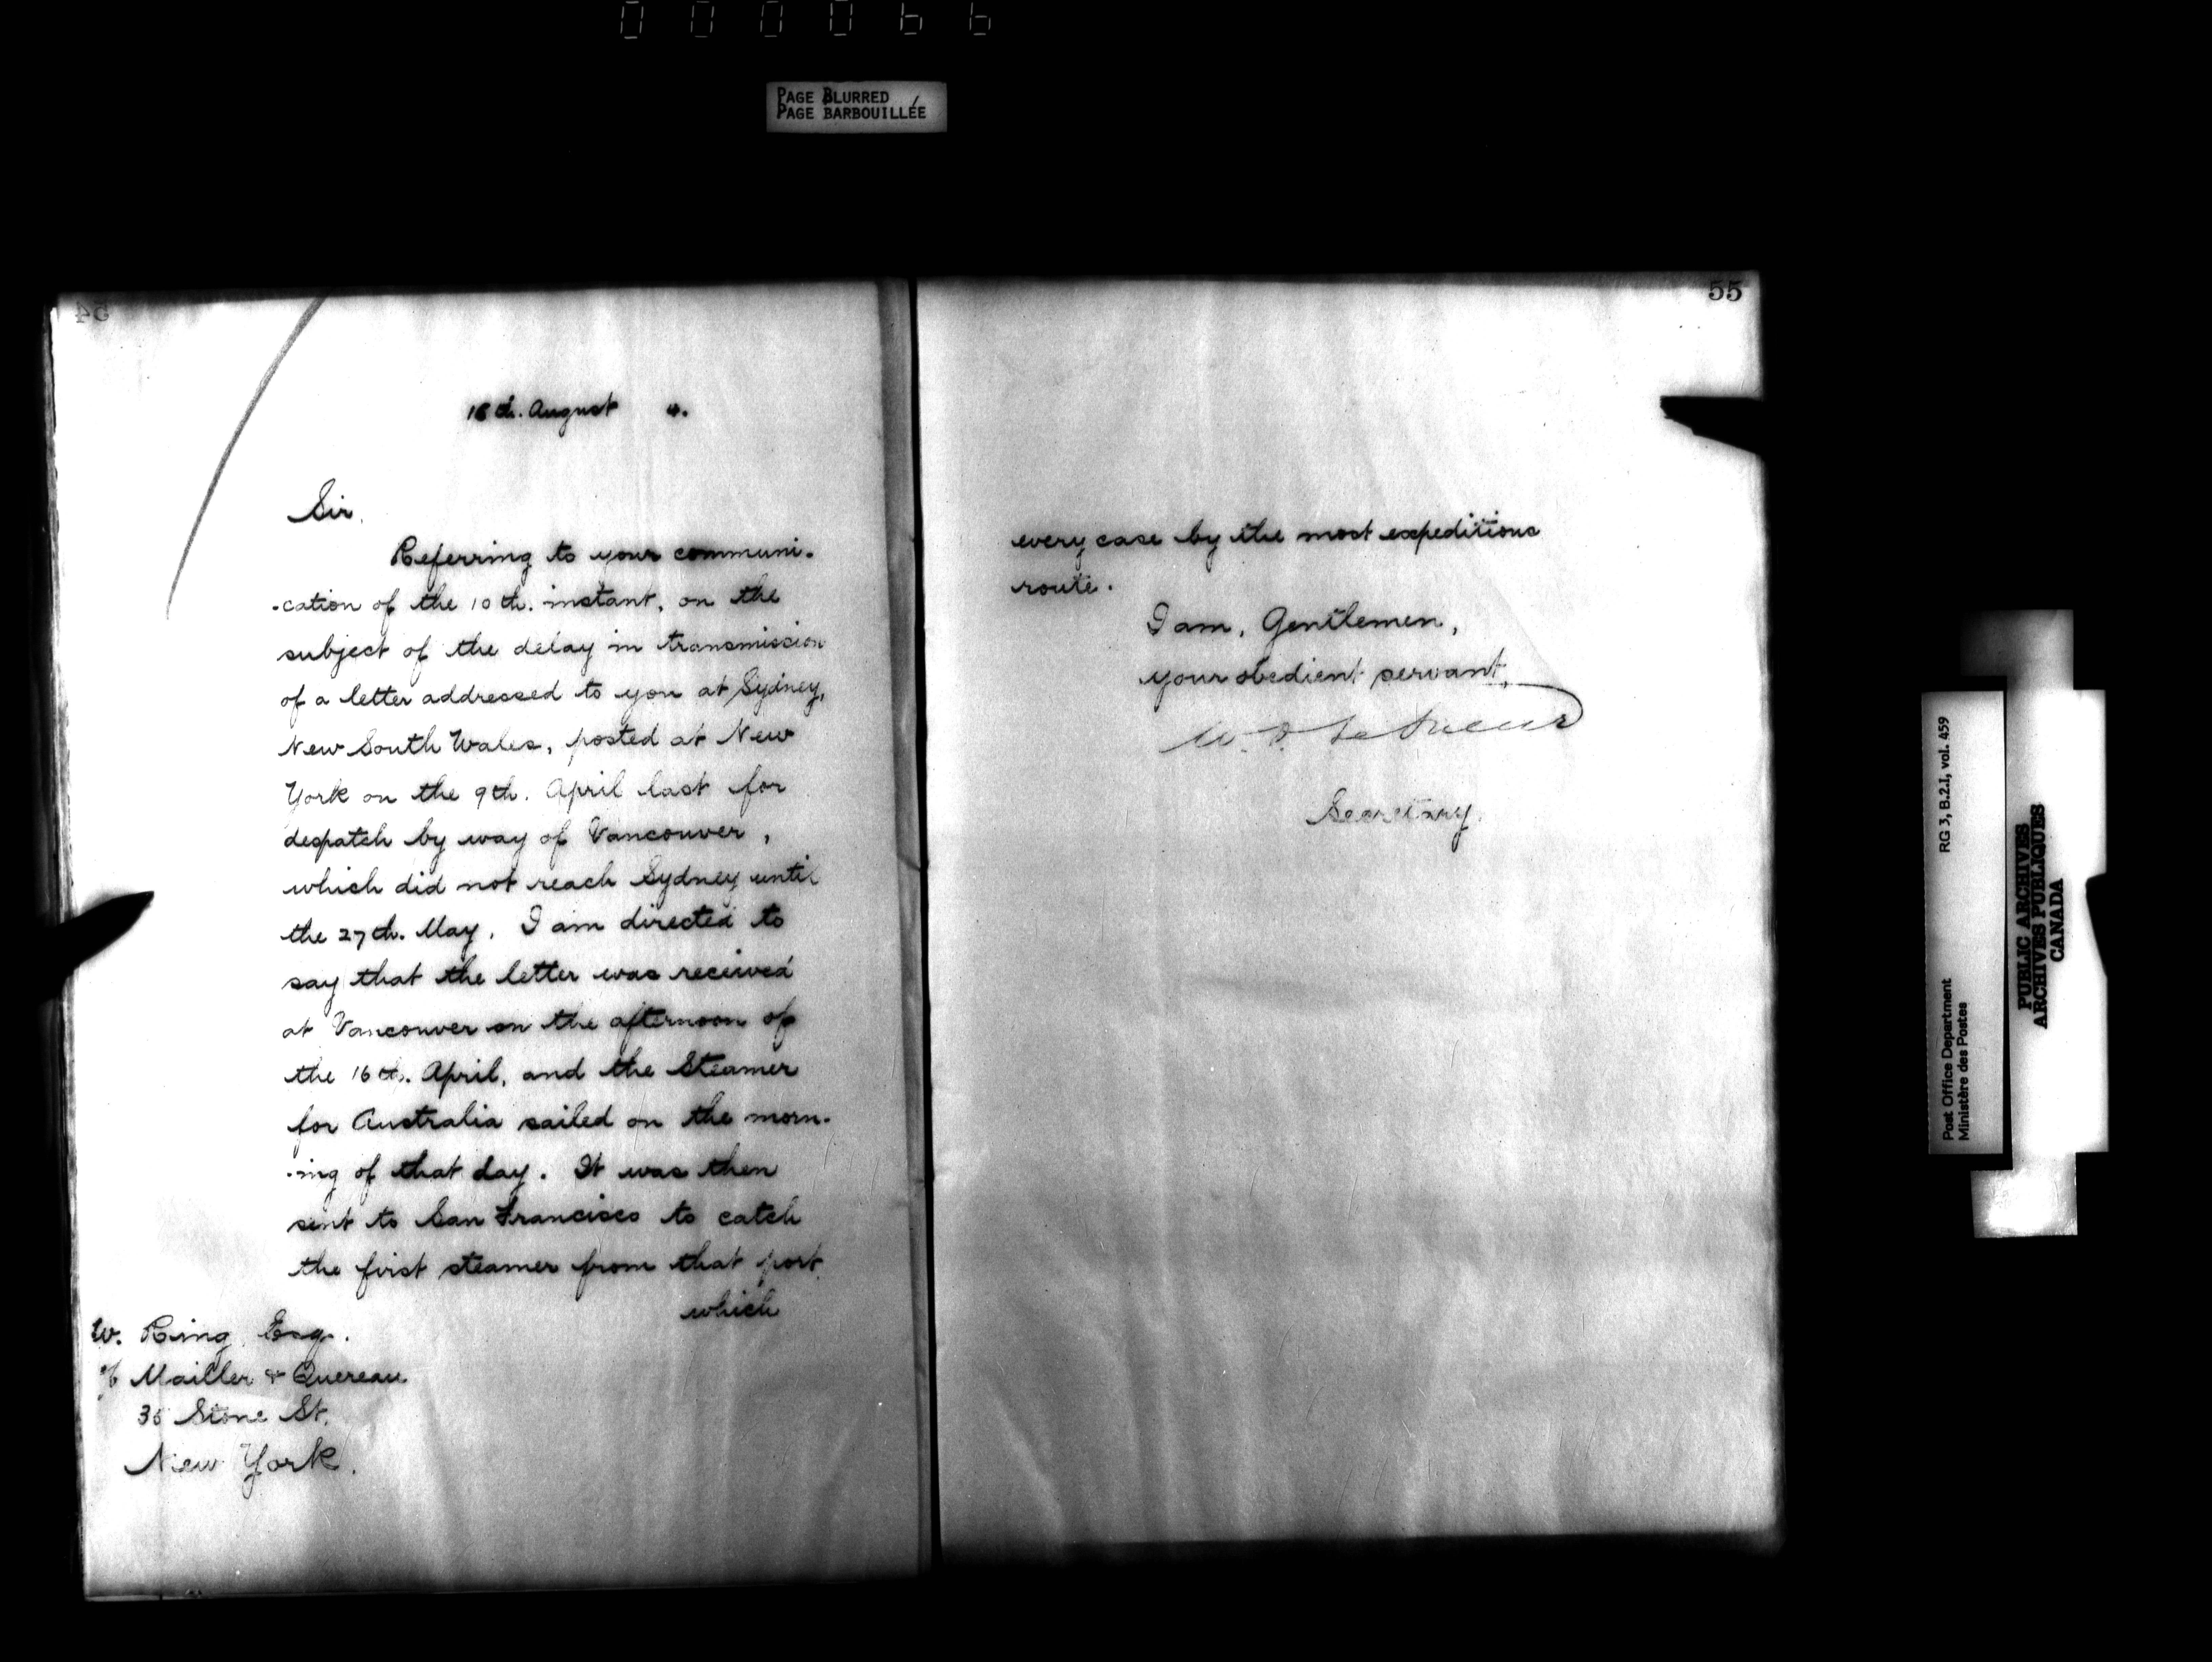 000066
PAGE BLURRED
PAGE BARBOUILLÉE
54
18th. August 4.
Sir,
Referring to your communi-
-cation of the 10th. instant, on the
subject of the delay in transmission
of a letter addressed to you at Sydney,
New South Wales, posted at New
York on the 9th. April last for
despatch by way of Vancouver,
which did not reach Sydney until
the 27th. May. I am directed to
say that the letter was received
at Vancouver on the afternoon of
the 16th. April, and the Steamer
for Australia sailed on the morn-
-ing of that day. It was then
sent to San Francisco to catch
the first steamer from that port
which
W. Ring, Esq.
% Mailler & Quereau
35 Stone St.
New York.
55
every case by the most expeditious
route.
I am, Gentlemen,
your obedient servant,
W. D. LeSueur
Secretary.
Post Office Department
Ministère des Postes
RG 3, B.2.I, vol. 459
PUBLIC ARCHIVES
ARCHIVES PUBLIQUES
CANADA